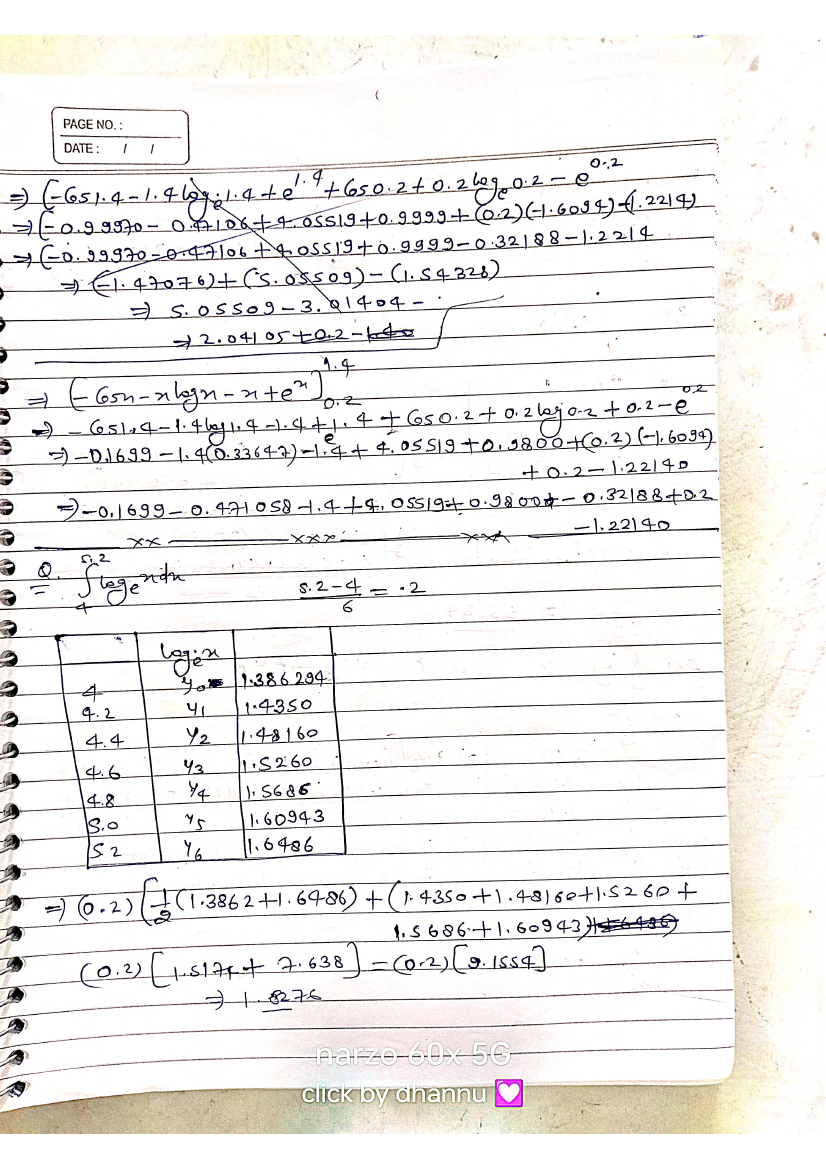 PAGE NO. :
DATE : / /
⇒ (-cos1.4 - 1.4 logₑ1.4 + e^1.4 + cos0.2 + 0.2 logₑ0.2 - e^0.2
⇒ (-0.99970 - 0.47106 + 4.05519 + 0.9999 + (0.2)(-1.6094) - (1.2214)
⇒ (-0.99970 - 0.47106 + 4.05519 + 0.9999 - 0.32188 - 1.2214
⇒ (-1.47076) + (5.05509) - (1.54328)
⇒ 5.05509 - 3.01404 -
⇒ 2.04105 + 0.2 -
⇒ [-cosx - xlogx - x + e^x]^1.4_0.2
⇒ - cos1.4 - 1.4log1.4 - 1.4 + e^1.4 + cos0.2 + 0.2 log0.2 + 0.2 - e^0.2
⇒ -0.1699 - 1.4(0.33647) - 1.4 + 4.05519 + 0.9800 + (0.2)(-1.6094)
+ 0.2 - 1.22140
⇒ -0.1699 - 0.471058 - 1.4 + 4.05519 + 0.9800 - 0.32188 + 0.2
- 1.22140
xx xxx xxx
Q. ∫_4^5.2 logₑx dx (5.2-4)/6 = .2
logₑx
4 y₀ 1.386294
4.2 y₁ 1.4350
4.4 y₂ 1.48160
4.6 y₃ 1.5260
4.8 y₄ 1.5686
5.0 y₅ 1.60943
5.2 y₆ 1.6486
⇒ (0.2) [1/2 (1.3862 + 1.6486) + (1.4350 + 1.48160 + 1.5260 +
1.5686 + 1.60943)
(0.2) [1.5174 + 7.638] = (0.2) [9.1554]
⇒ 1.8276
narzo 60x 5G
click by dhannu